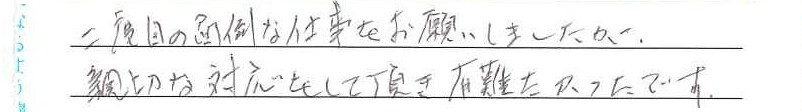 二度目の面倒な仕事をお願いしましたが、
親切な対応をして頂き有難たかったです。